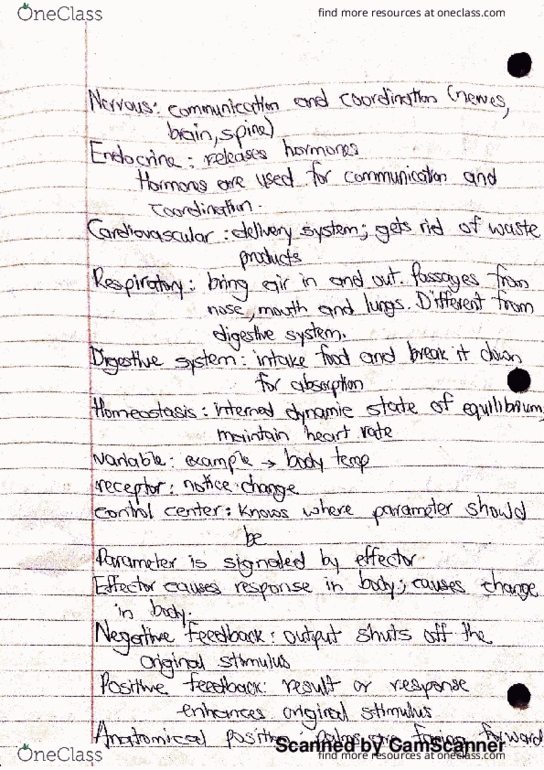 OneClass
find more resources at oneclass.com
Nervous: communication and coordination (nerves,
brain, spine)
Endocrine: releases hormones
Hormones are used for communication and
coordination.
Cardiovascular: delivery system; gets rid of waste
products
Respiratory: bring air in and out. Passages from
nose, mouth and lungs. Different from
digestive system.
Digestive system: intake food and break it down
for absorption
Homeostasis: internal dynamic state of equilibrium,
maintain heart rate
Variable: example → body temp
receptor: notice change
control center: knows where parameter should
be
Parameter is signaled by effector.
Effector causes response in body; causes change
in body.
Negative Feedback: output shuts off the
original stimulus
Positive feedback: result or response
enhances original stimulus
Anatomical position: palms are facing forward
Scanned by CamScanner
OneClass
find more resources at oneclass.com